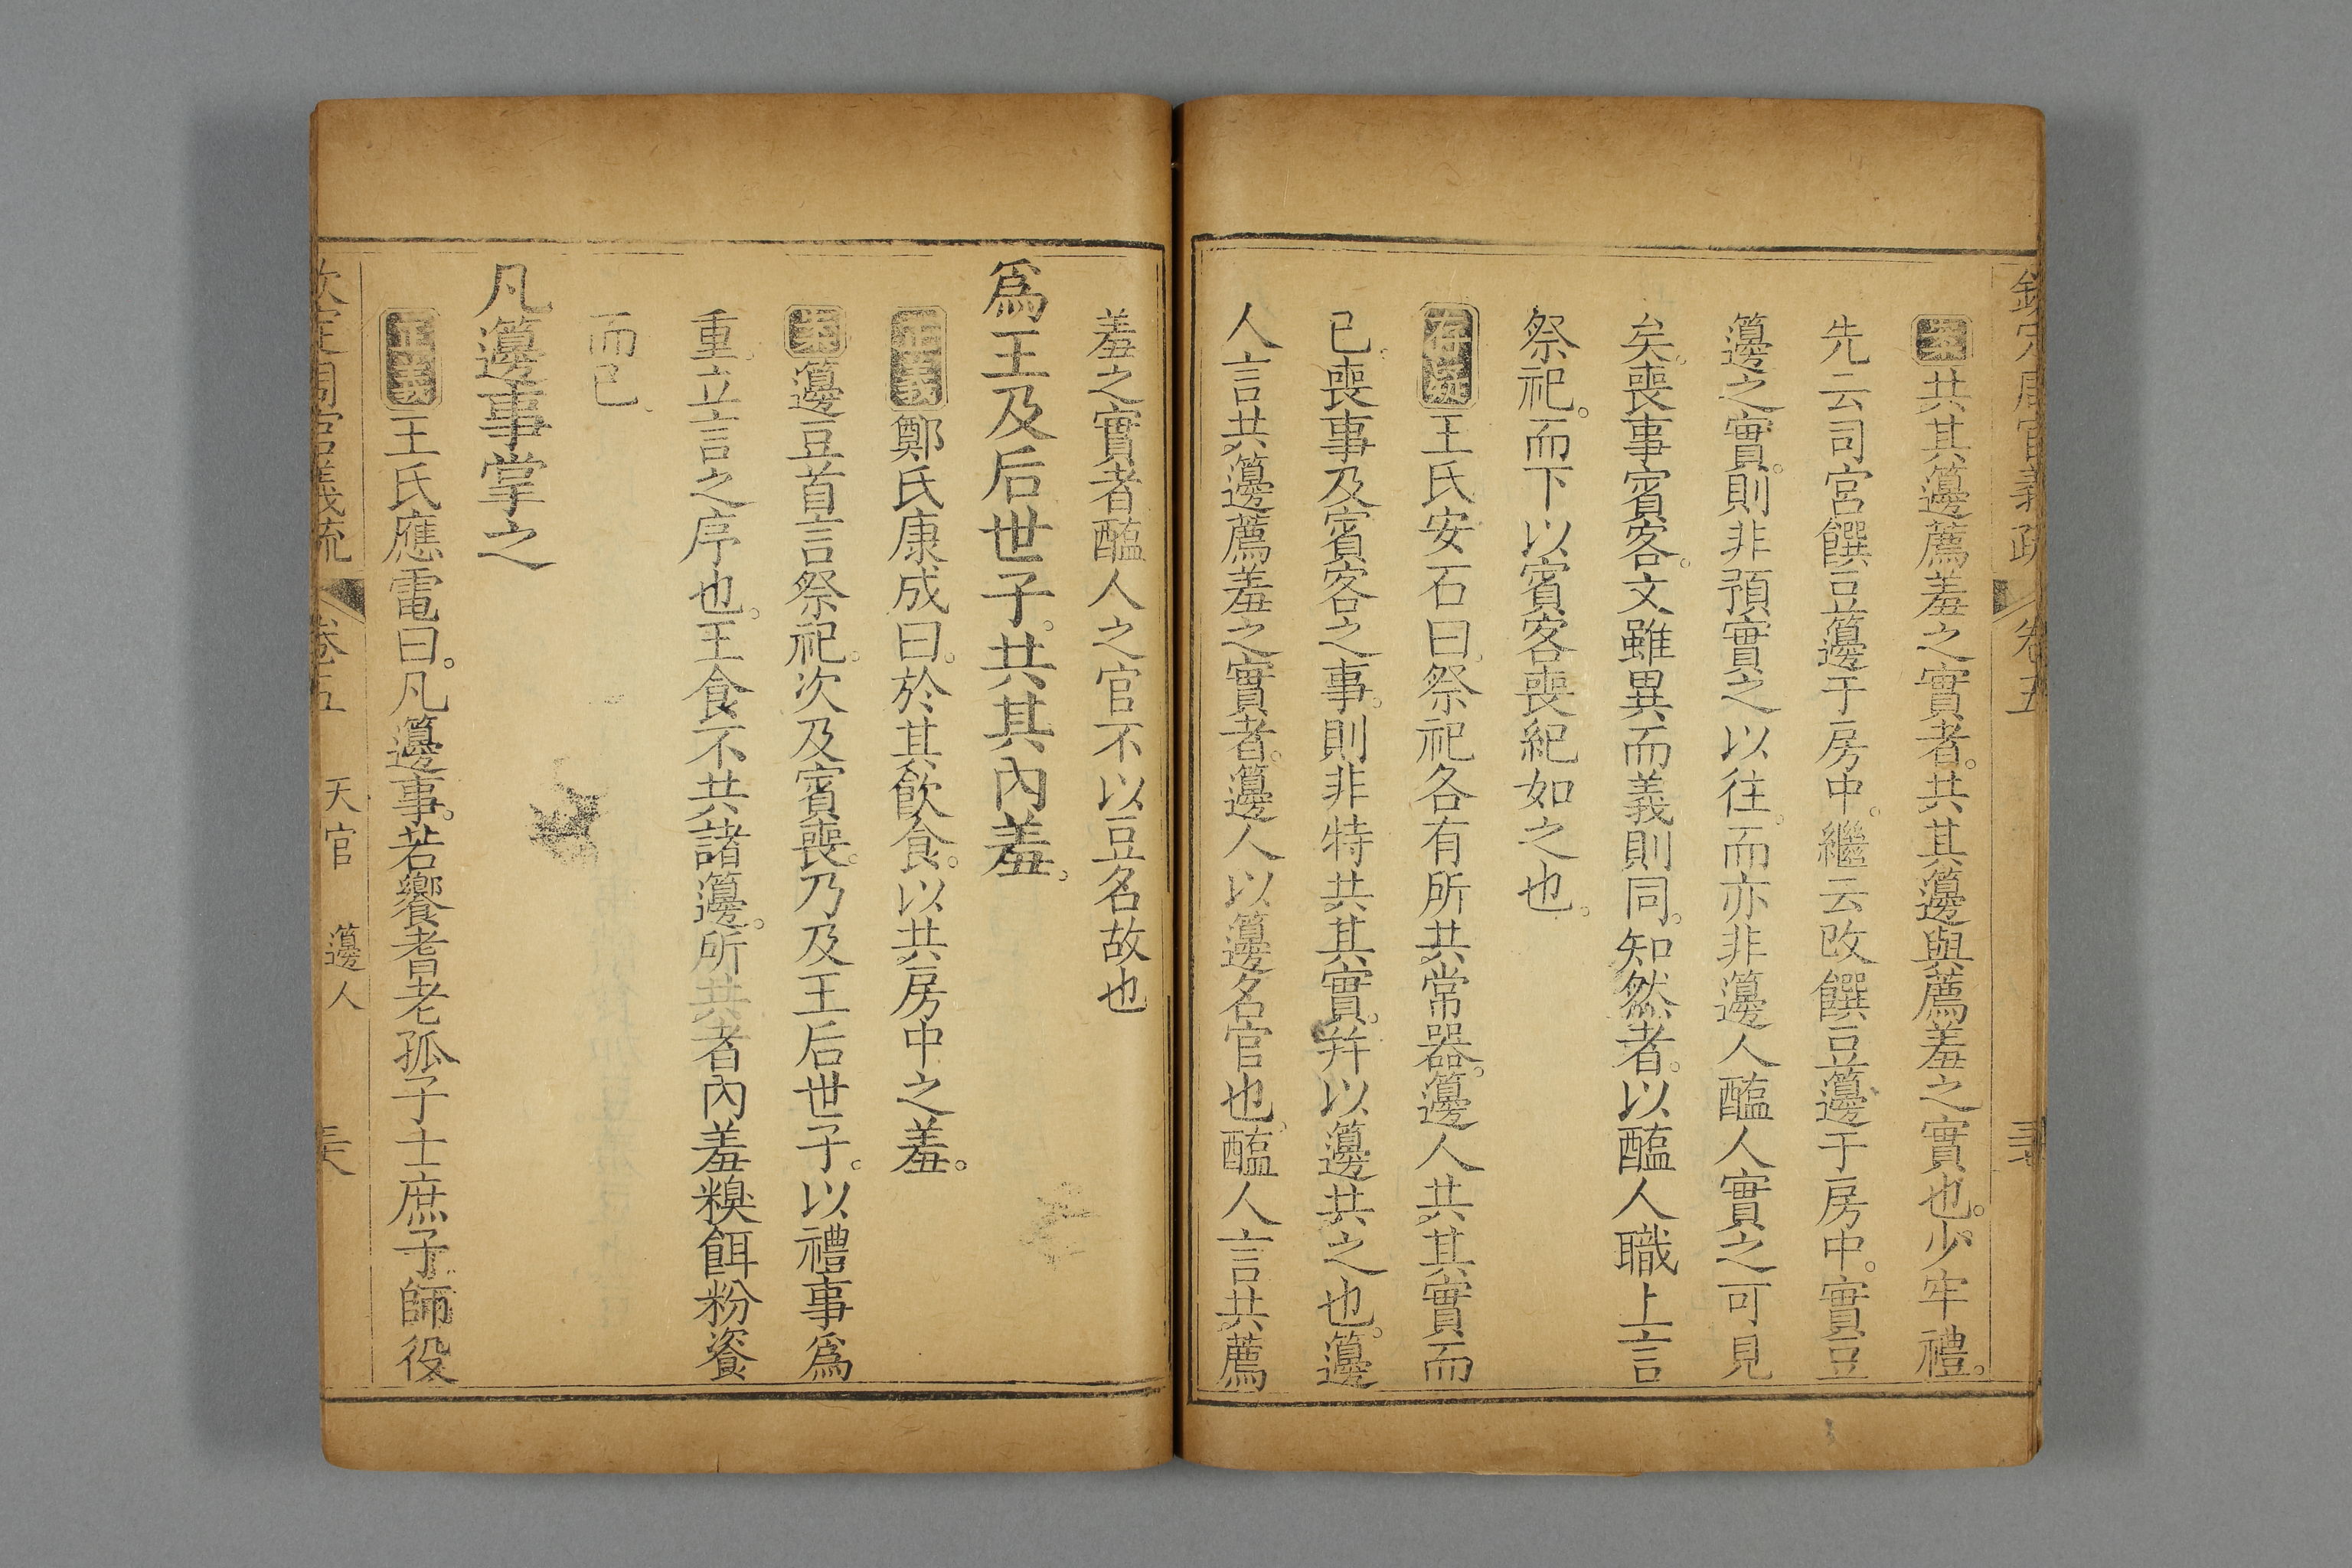 欽定周官義疏 卷五
案共其籩薦羞之實者。共其籩與薦羞之實也。少牢禮。
先云司宮饌豆籩于房中。繼云改饌豆籩于房中。實豆
籩之實。則非預實之以往。而亦非籩人醢人實之可見
矣。喪事賓客。文雖異而義則同。知然者。以醢人職上言
祭祀。而下以賓客喪紀如之也。
存疑王氏安石曰祭祀各有所共常器。籩人共其實而
已。喪事及賓客之事。則非特共其實。幷以籩共之也。籩
人言共籩薦羞之實者。籩人以籩名官也。醢人言共薦
羞之實者醢人之官不以豆名故也
爲王及后世子。共其內羞。
正義鄭氏康成曰。於其飮食。以共房中之羞。
案籩豆首言祭祀。次及賓喪。乃及王后世子。以禮事爲
重。立言之序也。王食不共諸籩。所共者內羞糗餌粉餈
而已。
凡籩事掌之
正義王氏應電曰。凡籩事。若饗耆老孤子士庶子師役
欽定周官義疏 卷五 天官 籩人